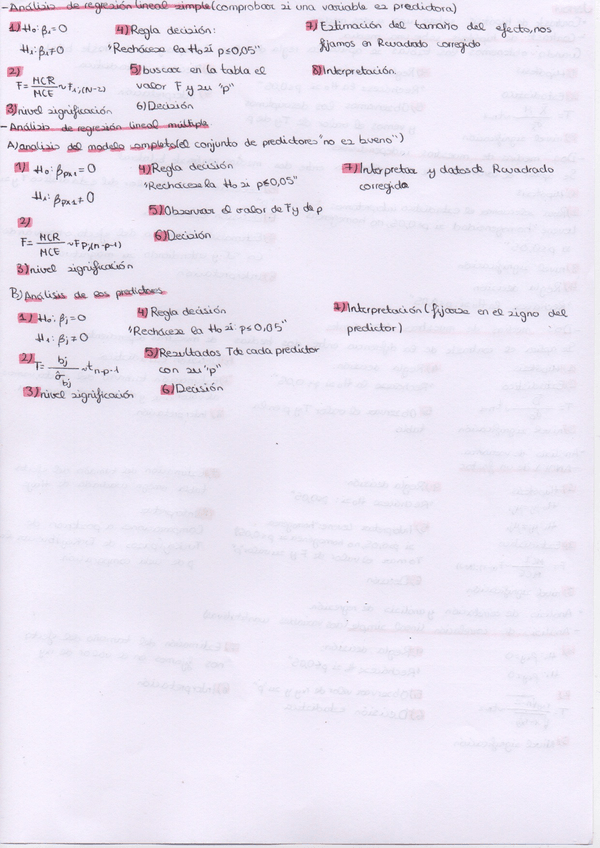 - Análisis de regresión lineal simple (comprobar si una variable es predictora)
1) H₀: β₁ = 0
H₁: β₁ ≠ 0
2) F = MCR / MCE ~ F₁;(N-2)
3) nivel significación
4) Regla decisión:
"Rechácese la H₀ si p≤0,05"
5) buscar en la tabla el
valor F y su "p"
6) Decisión
7) Estimación del tamaño del efecto, nos
fijamos en Rcuadrado corregido
8) Interpretación
- Análisis de regresión lineal múltiple
A) analisis del modelo completo (el conjunto de predictores "no es bueno")
1) H₀: βpx1 = 0
H₁: βpx1 ≠ 0
2)
F = MCR / MCE ~ F p,(n-p-1)
3) nivel significación
4) Regla decisión
"Rechácese la H₀ si p≤0,05"
5) Observar el valor de F y de p
6) Decisión
7) Interpretar y datos de Rcuadrado
corregido
B) Análisis de los predictores
1) H₀: βj = 0
H₁: βj ≠ 0
2) T = bj / σ̂bj ~ t n-p-1
3) nivel significación
4) Regla decisión
"Rechácese la H₀ si: p≤0,05"
5) Resultados T de cada predictor
con su "p"
6) Decisión
7) Interpretación (fijarse en el signo del
predictor)